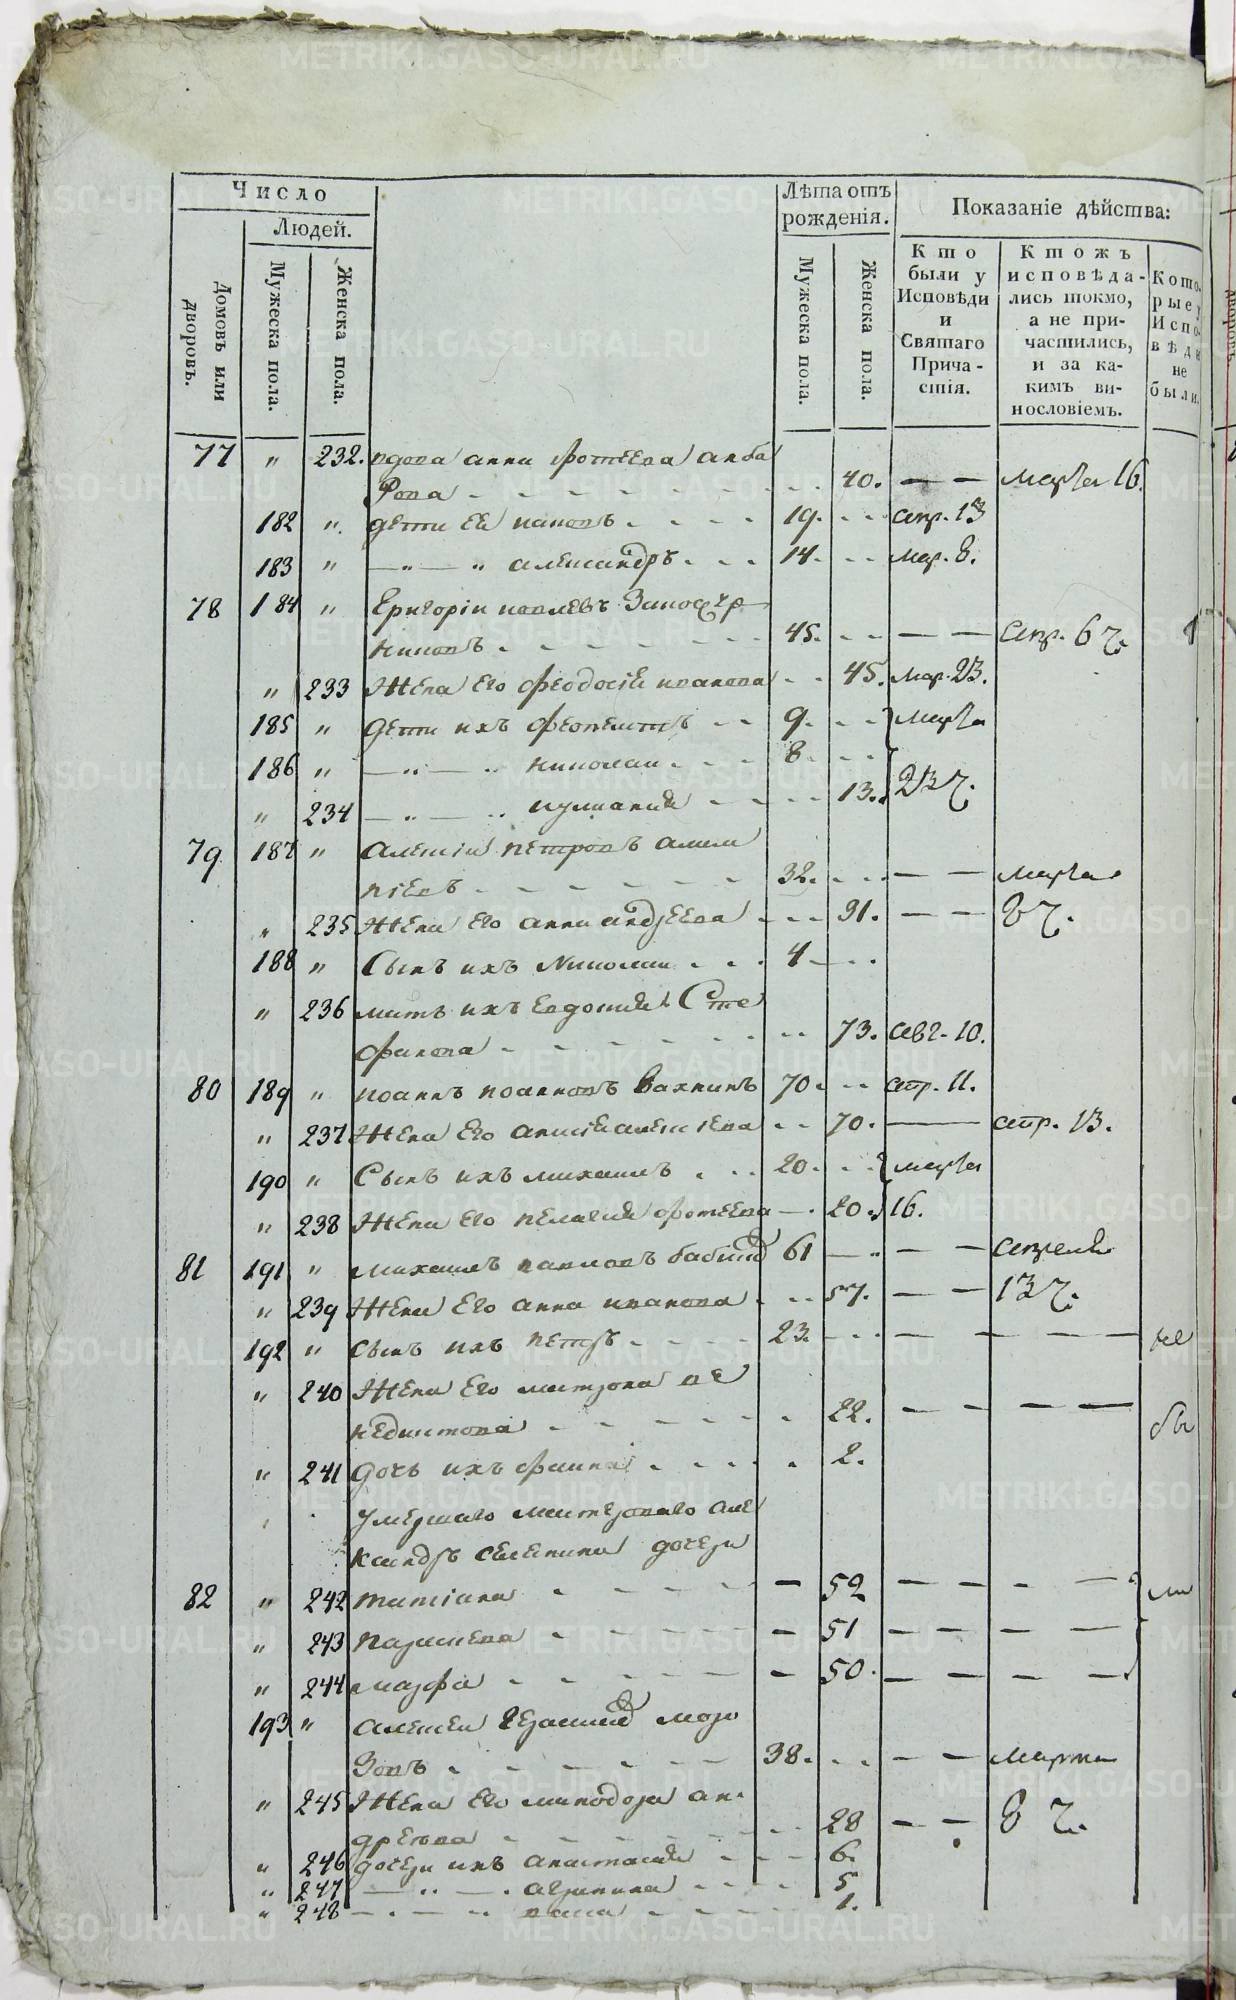 Число
Людей.
Домовъ или дворовъ.
Мужеска пола.
Женска пола.
Лѣта отъ рожденія.
Мужеска пола.
Женска пола.
Показаніе дѣйства:
Кто были у Исповѣди и Святаго Прича-стія.
Ктожъ исповѣда-лись токмо, а не при-частились, и за ка-кимъ ви-нословіемъ.
Кото-рые у Испо-вѣди не были.
77 " 232. вдова анна фотеева
рова 40. — — марта 16.
182 " дети ея 19. апр. 13
183 " —"— " александръ 14. мар. 8.
78 184 " Григоріи
45. — — апр. 6 ч.
" 233 Жена Его феодосія иванова 45. мар. 23.
185 " дети ихъ 9. марта
186 " —"— " николаи 8
" 234 —"— " 13. 23 ч.
79 187 " алексіи петровъ
32. — — марта
" 235 Жена Его анна андреева 31. — — 8 ч.
188 " Сынъ ихъ Николаи 4
" 236 мать ихъ Евдокия Сте
фанова 73. авг. 10.
80 189 " иоаннъ иоанновъ Вахнинъ 70. апр. 11.
" 237 Жена Его 70. — апр. 13.
190 " Сынъ ихъ михаилъ 20. марта
" 238 Жена Его пелагия фотеева 20. 16.
81 191 " михаилъ павловъ 61 — — апреля
" 239 Жена Его анна иванова 57. — — 13 ч.
192 " сынъ ихъ петръ 23. — — — не
" 240 Жена Его матрона ве
недиктова 22. — — — — бы
" 241 дочь ихъ фаина 2.
умершаго мастероваго але
ксандръ дочери
82 " 242 татіана — 52 — — — — ли
" 243 парасиева — 51 — — — —
" 244 марфа — 50. — — — —
193 " алексеи моро
зовъ 38. — — марта
" 245 Жена Его минодора ан-
дреева 28 — — 8 ч.
" 246 дочери ихъ анастасия 6.
" 247 —"— агрипина 5
" 248 —"— " 1.
METRIKI.GASO-URAL.RU